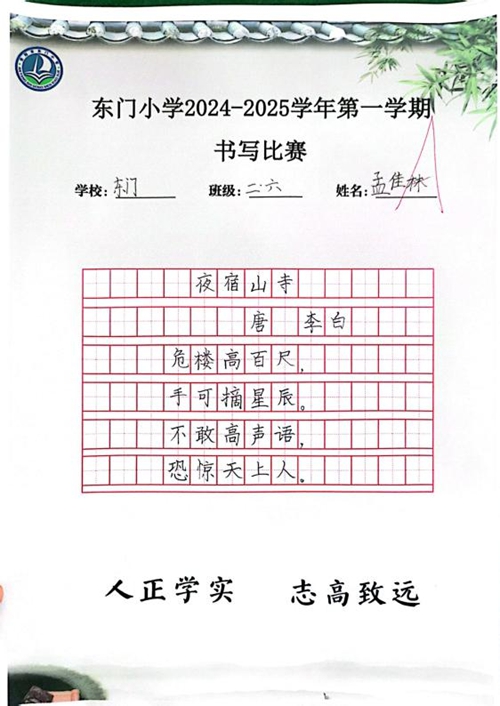 东门小学2024-2025学年第一学期
书写比赛
学校：东门 班级：二.六 姓名：孟佳林
夜宿山寺
唐 李白
危楼高百尺，
手可摘星辰。
不敢高声语，
恐惊天上人。
人正学实 志高致远